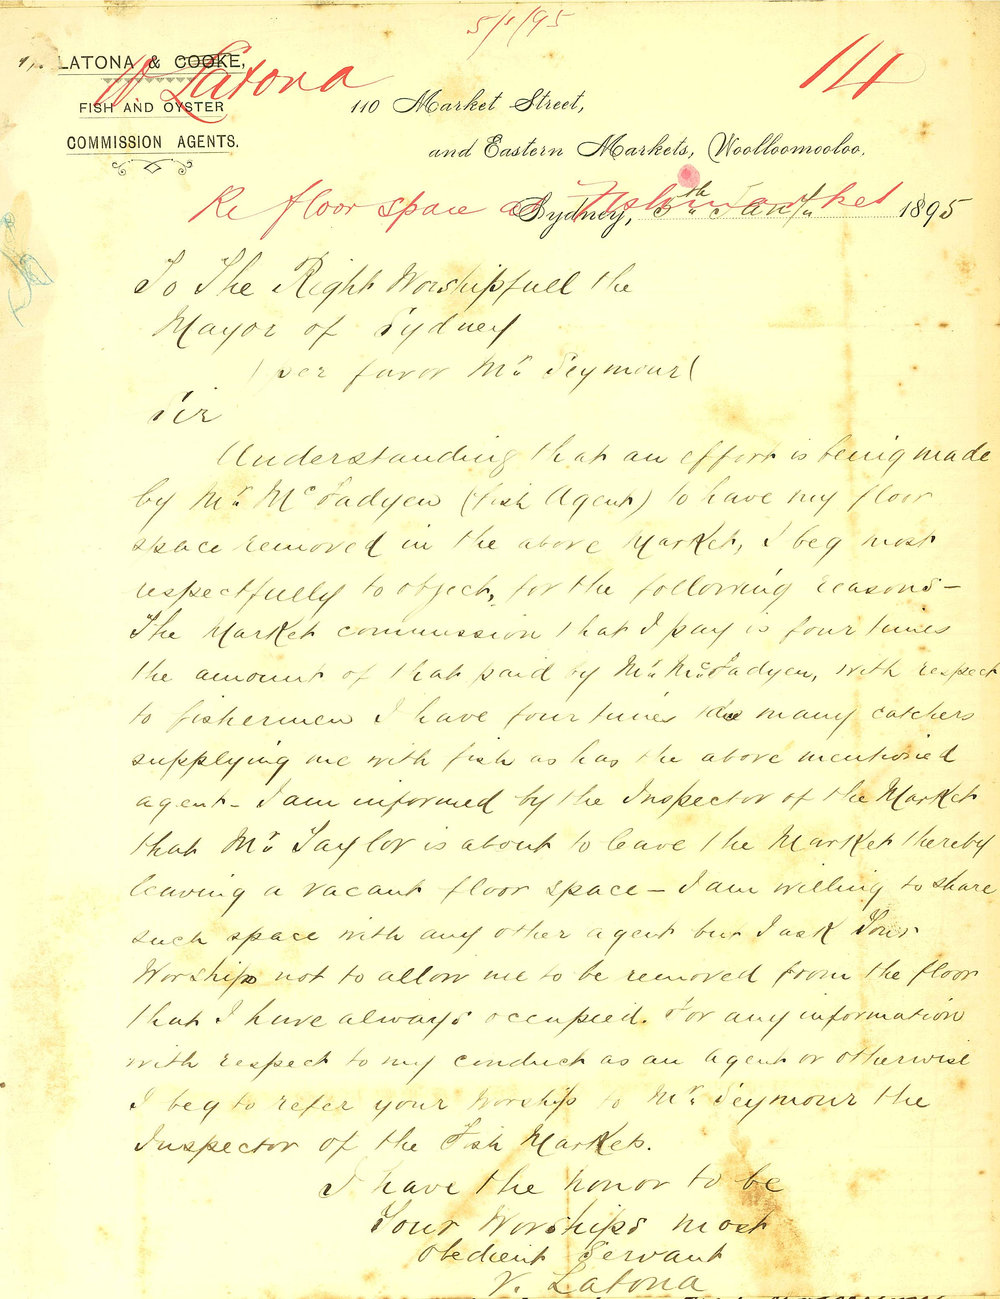 5/1/95
14
LATONA & COOKE,
W Latona
FISH AND OYSTER
COMMISSION AGENTS.
110 Market Street,
and Eastern Markets, Woolloomooloo.
Re floor space at Fishmarket
Sydney, 5th Jany 1895
To The Right Worshipfull the
Mayor of Sydney
(per favor Mr. Seymour)
Sir
Understanding that an effort is being made
by Mr. McFadyen (Fish Agent) to have my floor
space removed in the above Market, I beg most
respectfully to object, for the following reasons—
The Market commission that I pay is four times
the amount of that paid by Mr. McFadyen, with respect
to fishermen I have four times as many catchers
supplying me with fish as has the above mentioned
agent - I am informed by the Inspector of the Market
that Mr Taylor is about to leave the Market thereby
leaving a vacant floor space — I am willing to share
such space with any other agent but I ask Your
Worship not to allow me to be removed from the floor
that I have always occupied. For any information
with respect to my conduct as an agent or otherwise
I beg to refer your Worship to Mr. Seymour the
Inspector of the Fish Markets.
I have the honor to be
Your Worships most
obedient Servant
V. Latona